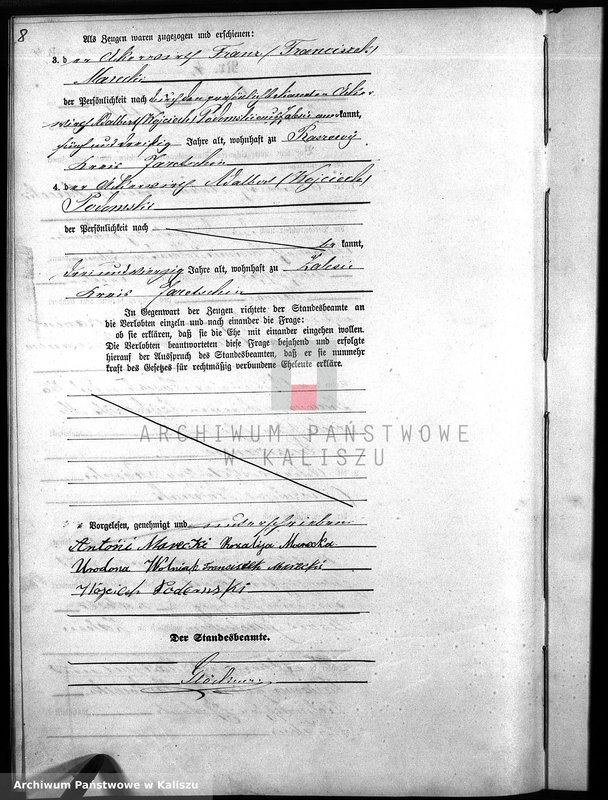 8
Als Zeugen waren zugezogen und erschienen:
3. der Ackerwirth Franz (Franciszek)
Marecki
der Persönlichkeit nach durch den persönlich bekannten Acker-
wirth Adalbert (Wojciech) Podemski aus Zalesie anerkannt,
fünf und dreißig Jahre alt, wohnhaft zu Raszewy
Kreis Jarotschin
4. der Ackerwirth Adalbert (Wojciech)
Podemski
der Persönlichkeit nach
be kannt,
drei und vierzig Jahre alt, wohnhaft zu Zalesie
Kreis Jarotschin
In Gegenwart der Zeugen richtete der Standesbeamte an
die Verlobten einzeln und nach einander die Frage:
ob sie erklären, daß sie die Ehe mit einander eingehen wollen.
Die Verlobten beantworteten diese Frage bejahend und erfolgte
hierauf der Ausspruch des Standesbeamten, daß er sie nunmehr
kraft des Gesetzes für rechtmäßig verbundene Eheleute erkläre.
ARCHIWUM PAŃSTWOWE
W KALISZU
Vorgelesen, genehmigt und unterschrieben
Antoni Marecki Rozalija Marecka
Urodona Wolniak Franciszek Marecki
Wojciech Podemski
Der Standesbeamte.
Archiwum Państwowe w Kaliszu